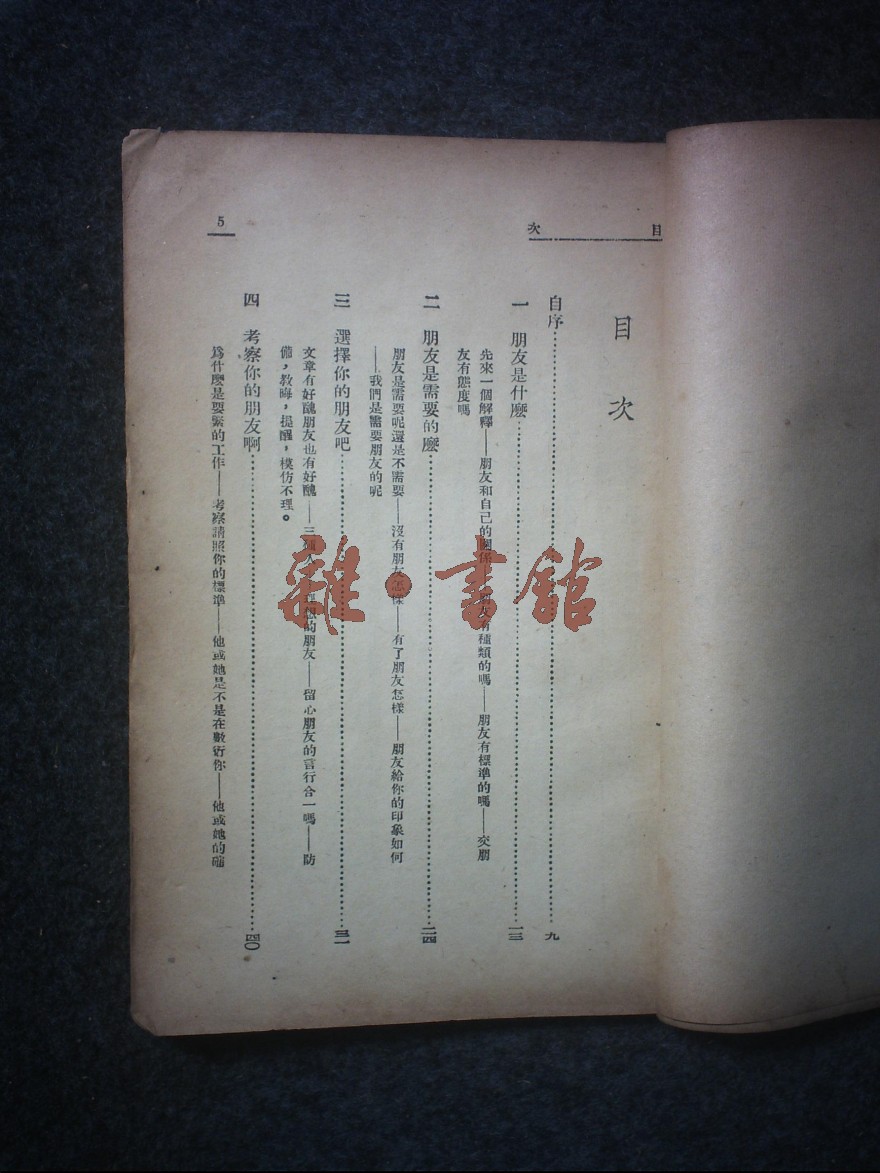 目次
5
目次
自序……九
一 朋友是什麽……一三
先來一個解釋——朋友和自己的關係——朋友有種類的嗎——朋友有標準的嗎——交朋
友有態度嗎
二 朋友是需要的麽……二四
朋友是需要呢還是不需要——沒有朋友怎樣——有了朋友怎樣——朋友給你的印象如何
——我們是需要朋友的呢
三 選擇你的朋友吧……三二
文章有好醜朋友也有好醜——三個人 理想的朋友——留心朋友的言行合一嗎——防
備，教晦，提醒，模仿不理。
四 考察你的朋友啊……四〇
爲什麽是要緊的工作——考察請照你的標準——他或她是不是在敷衍你——他或她的確
雜·書館